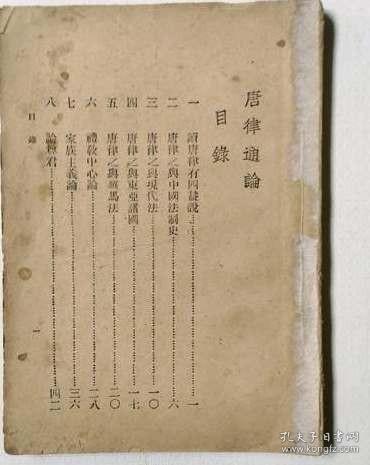 唐律通論
目錄
一 讀唐律有四益說……一
二 唐律之與中國法制史……六
三 唐律之與現代法……一〇
四 唐律之與東亞諸國……一七
五 唐律之與羅馬法……二〇
六 禮教中心論……二八
七 家族主義論……三六
八 論 君……四二
目錄
一
孔夫子旧书网
kongfz.com